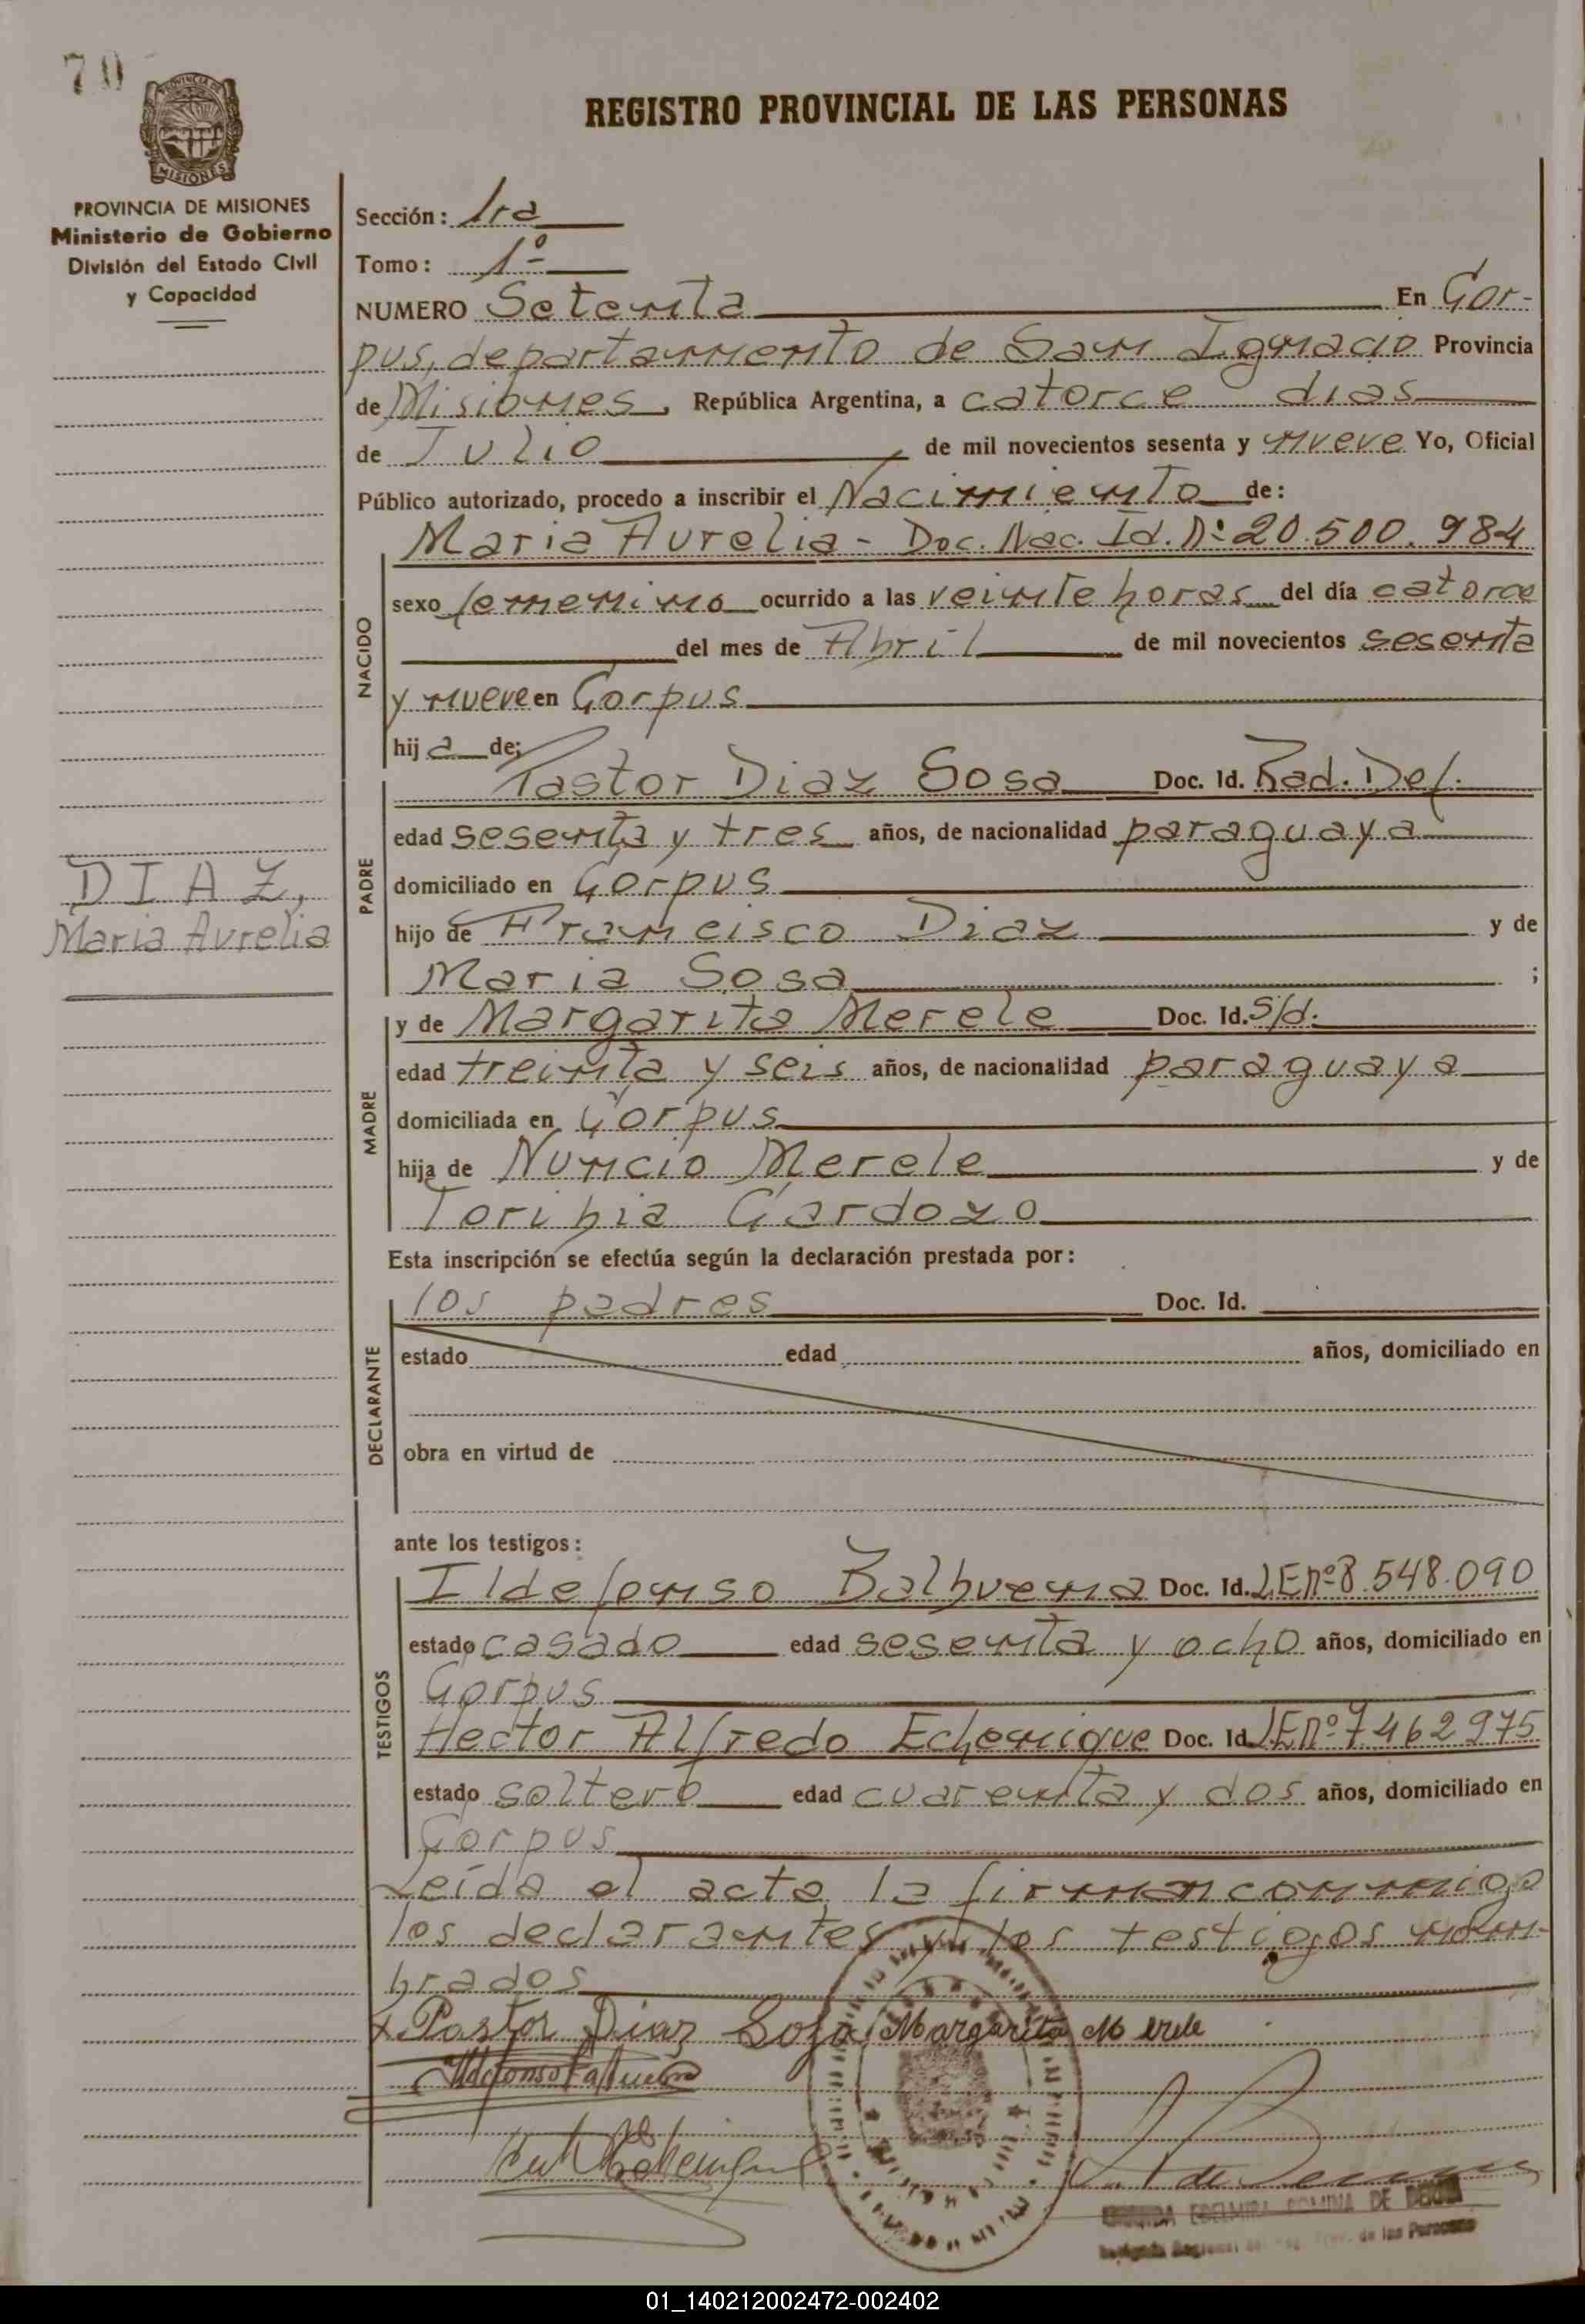 70
PROVINCIA DE
MISIONES
PROVINCIA DE MISIONES
Ministerio de Gobierno
División del Estado Civil
y Capacidad
REGISTRO PROVINCIAL DE LAS PERSONAS
Sección: 1ra
Tomo: 1º
NUMERO Setenta En Cor-
pus, departamento de San Ignacio Provincia
de Misiones, República Argentina, a catorce dias
de Julio de mil novecientos sesenta y nueve Yo, Oficial
Público autorizado, procedo a inscribir el Nacimiento de:
Maria Aurelia - Doc. Nac. Id. Nº 20.500.984
NACIDO
sexo femenino ocurrido a las veinte horas del día catorce
del mes de Abril de mil novecientos sesenta
y nueve en Corpus
hij a de;
DIAZ,
Maria Aurelia
PADRE
Pastor Diaz Sosa Doc. Id. Rad. Def.
edad sesenta y tres años, de nacionalidad paraguaya
domiciliado en Corpus
hijo de Francisco Diaz y de
Maria Sosa ;
MADRE
y de Margarita Merele Doc. Id. S/d.
edad treinta y seis años, de nacionalidad paraguaya
domiciliada en Corpus
hija de Nuncio Merele y de
Toribia Cardozo
Esta inscripción se efectúa según la declaración prestada por:
DECLARANTE
los padres Doc. Id.
estado edad años, domiciliado en
obra en virtud de
ante los testigos:
TESTIGOS
Ildefonso Balbuena Doc. Id. LE nº 8.548.090
estado casado edad sesenta y ocho años, domiciliado en
Corpus
Hector Alfredo Echenique Doc. Id. LE nº 7462975
estado soltero edad cuarenta y dos años, domiciliado en
Corpus
Leída el acta la firman conmigo
los declarantes y los testigos nom-
brados
x Pastor Diaz Sosa Margarita Merele
Ildefonso Balbuena
EDELMIRA ROMINA DE
de las Personas
01_140212002472-002402